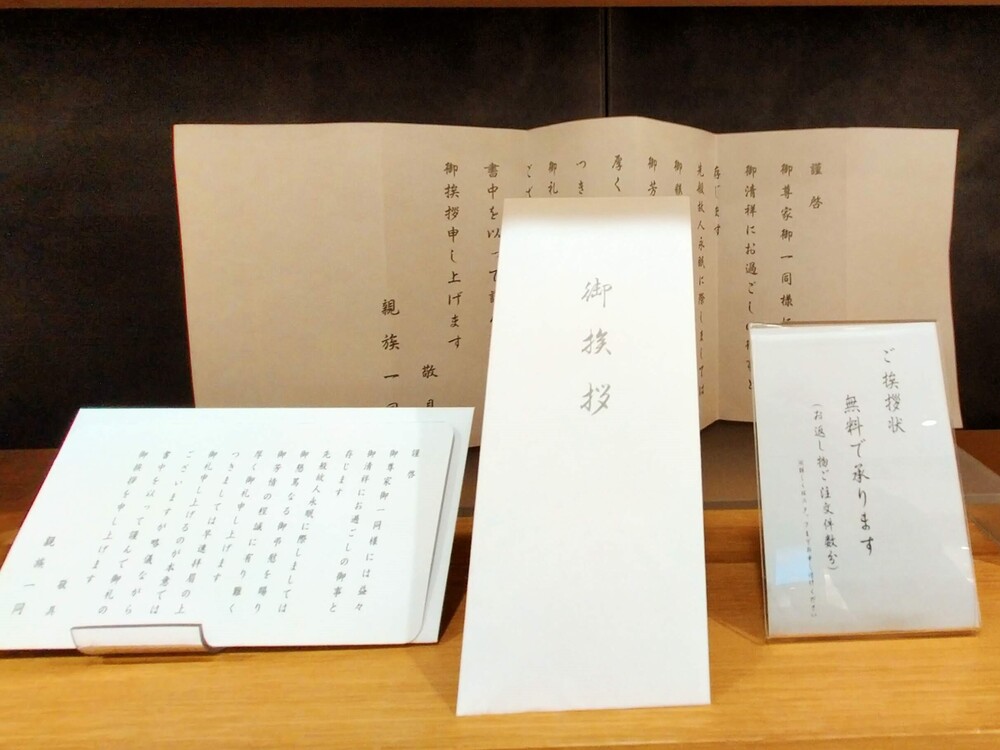 謹啓
御尊家御一同様
御清祥にお過ごし
存じます
先般故人永眠に際しましては
御芳
厚く
つき
御礼
書中を以って
御挨拶申し上げます
敬具
親族一同
御挨拶
謹啓
御尊家御一同様には益々
御清祥にお過ごしの御事と
存じます
先般故人永眠に際しましては
御懇篤なる御弔慰を賜り
御芳情の程誠に有り難く
厚く御礼申し上げます
つきましては早速拝眉の上
御礼申し上げるのが本意では
ございますが略儀ながら
書中を以って謹んで御礼の
御挨拶を申し上げます
敬具
親族一同
ご挨拶状
無料で承ります
(お返し物ご注文件数分)